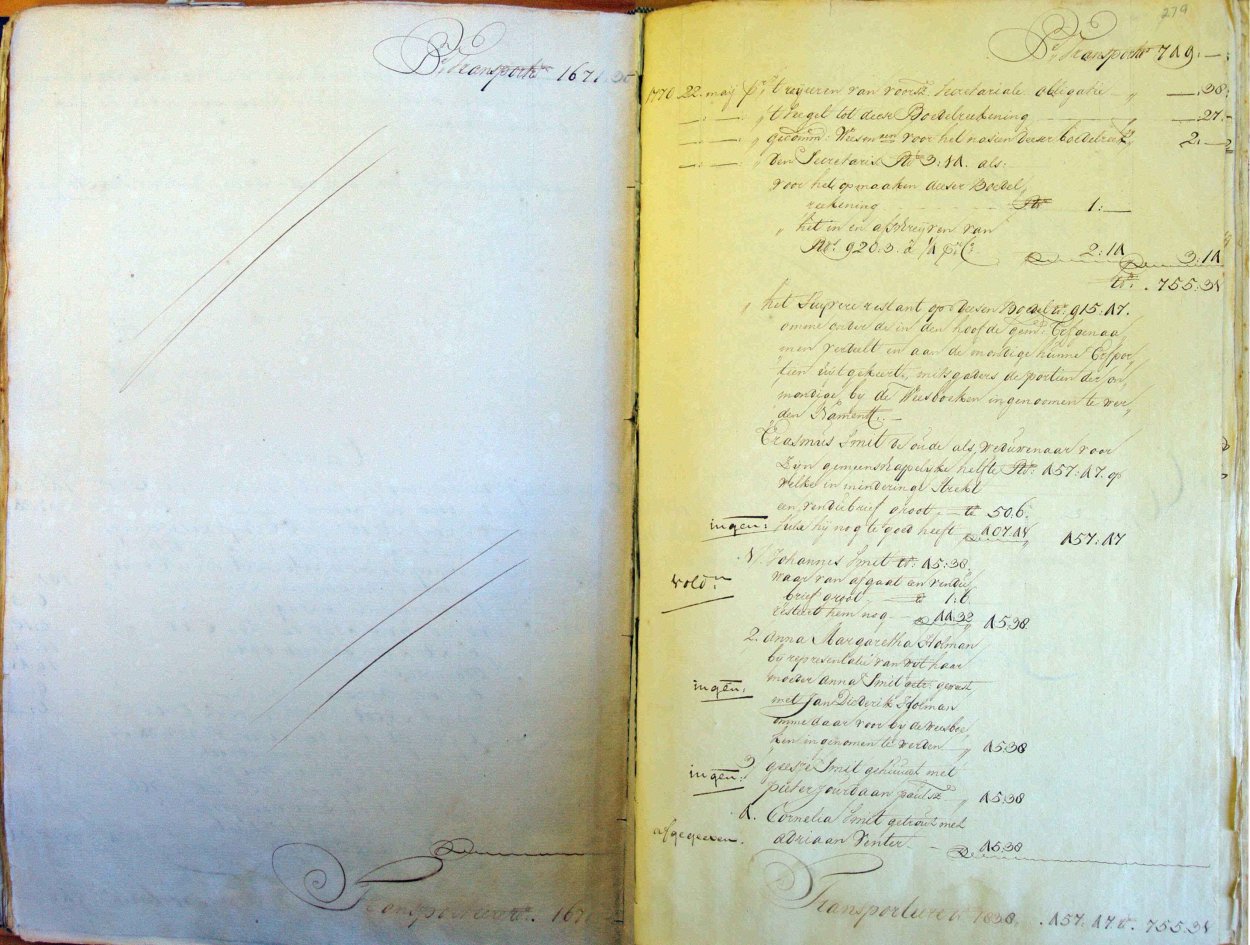 P.r Transport 1671:36
Transporteere 1671
279
P.r Transport 719:—
1778 22 maij p.r 't rejeeren van voorsz. Secretariale obligatie " —:36:
—:—:— " 't zegel tot deese Boedelreekening —:27:—
—:—:— " gecomm: Weesm.en voor het nasien deeser boedelreek.g 2:—
—:—:— " den Secretaris Rd.s 3:14. als:
voor het opmaaken deeser Boedel
reekening Rd.s 1:—
" het in en afschrijven van
Rd.s 928:3. à ¼ p.r C.o 2:14
3:14
Rd.s 755:34
" het Suyvere restant op deesen Boedel rd.s 915:47.
omme onder de in den hoofde gem. Erfgenaa
men verdeelt en aan de mondige hunne Erfpor
tien uitgekeert, mitsgaders de portien der on
mondige, by de Weesboeken ingenoomen te wer
den Rament.—
Erasmus Smit de oude als weduwenaar voor
Zijn gemeenschappelijke helfte Rd.s 457:47. op
welke in mindering strekt
een vendubrief groot — rd.s 50.6.
ingen: Zulx hij nog te goed heeft 407:41 457:47
1/ Johannes Smit rd.s 45:38,
vold.n waar van afgaat een vendu
brief groot — 1:6.
resteert hem nog — 44:32 45:38
2. Anna Margaretha Holman
by representatie van wyl haar
moeder Anna Smit eerte geweest
ingen: met Jan Diederik Holman
omme daar voor by de weesboe
ken ingenomen te werden " 45:38
3 Geesje Smit gehuwt met
ingen: Pieter Jourdaan Paulsz " 45:38
4. Cornelia Smit getrouwt met
afgegeeven. Adriaan Venter — 45:38
Transporteere 457:47 rd.s 755:34